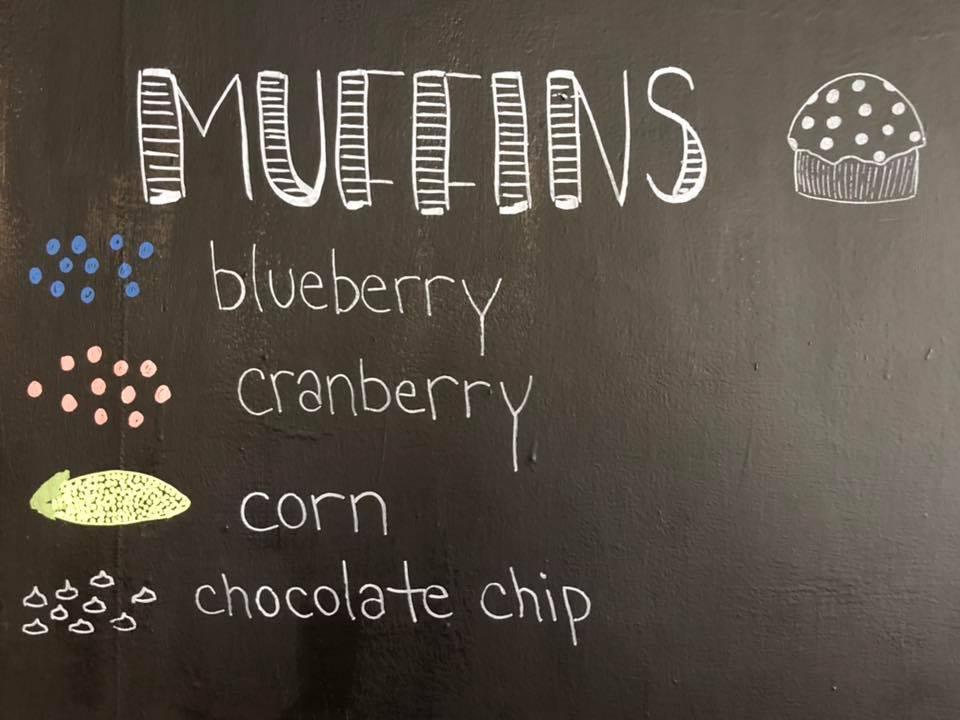 MUFFINS
blueberry
cranberry
corn
chocolate chip